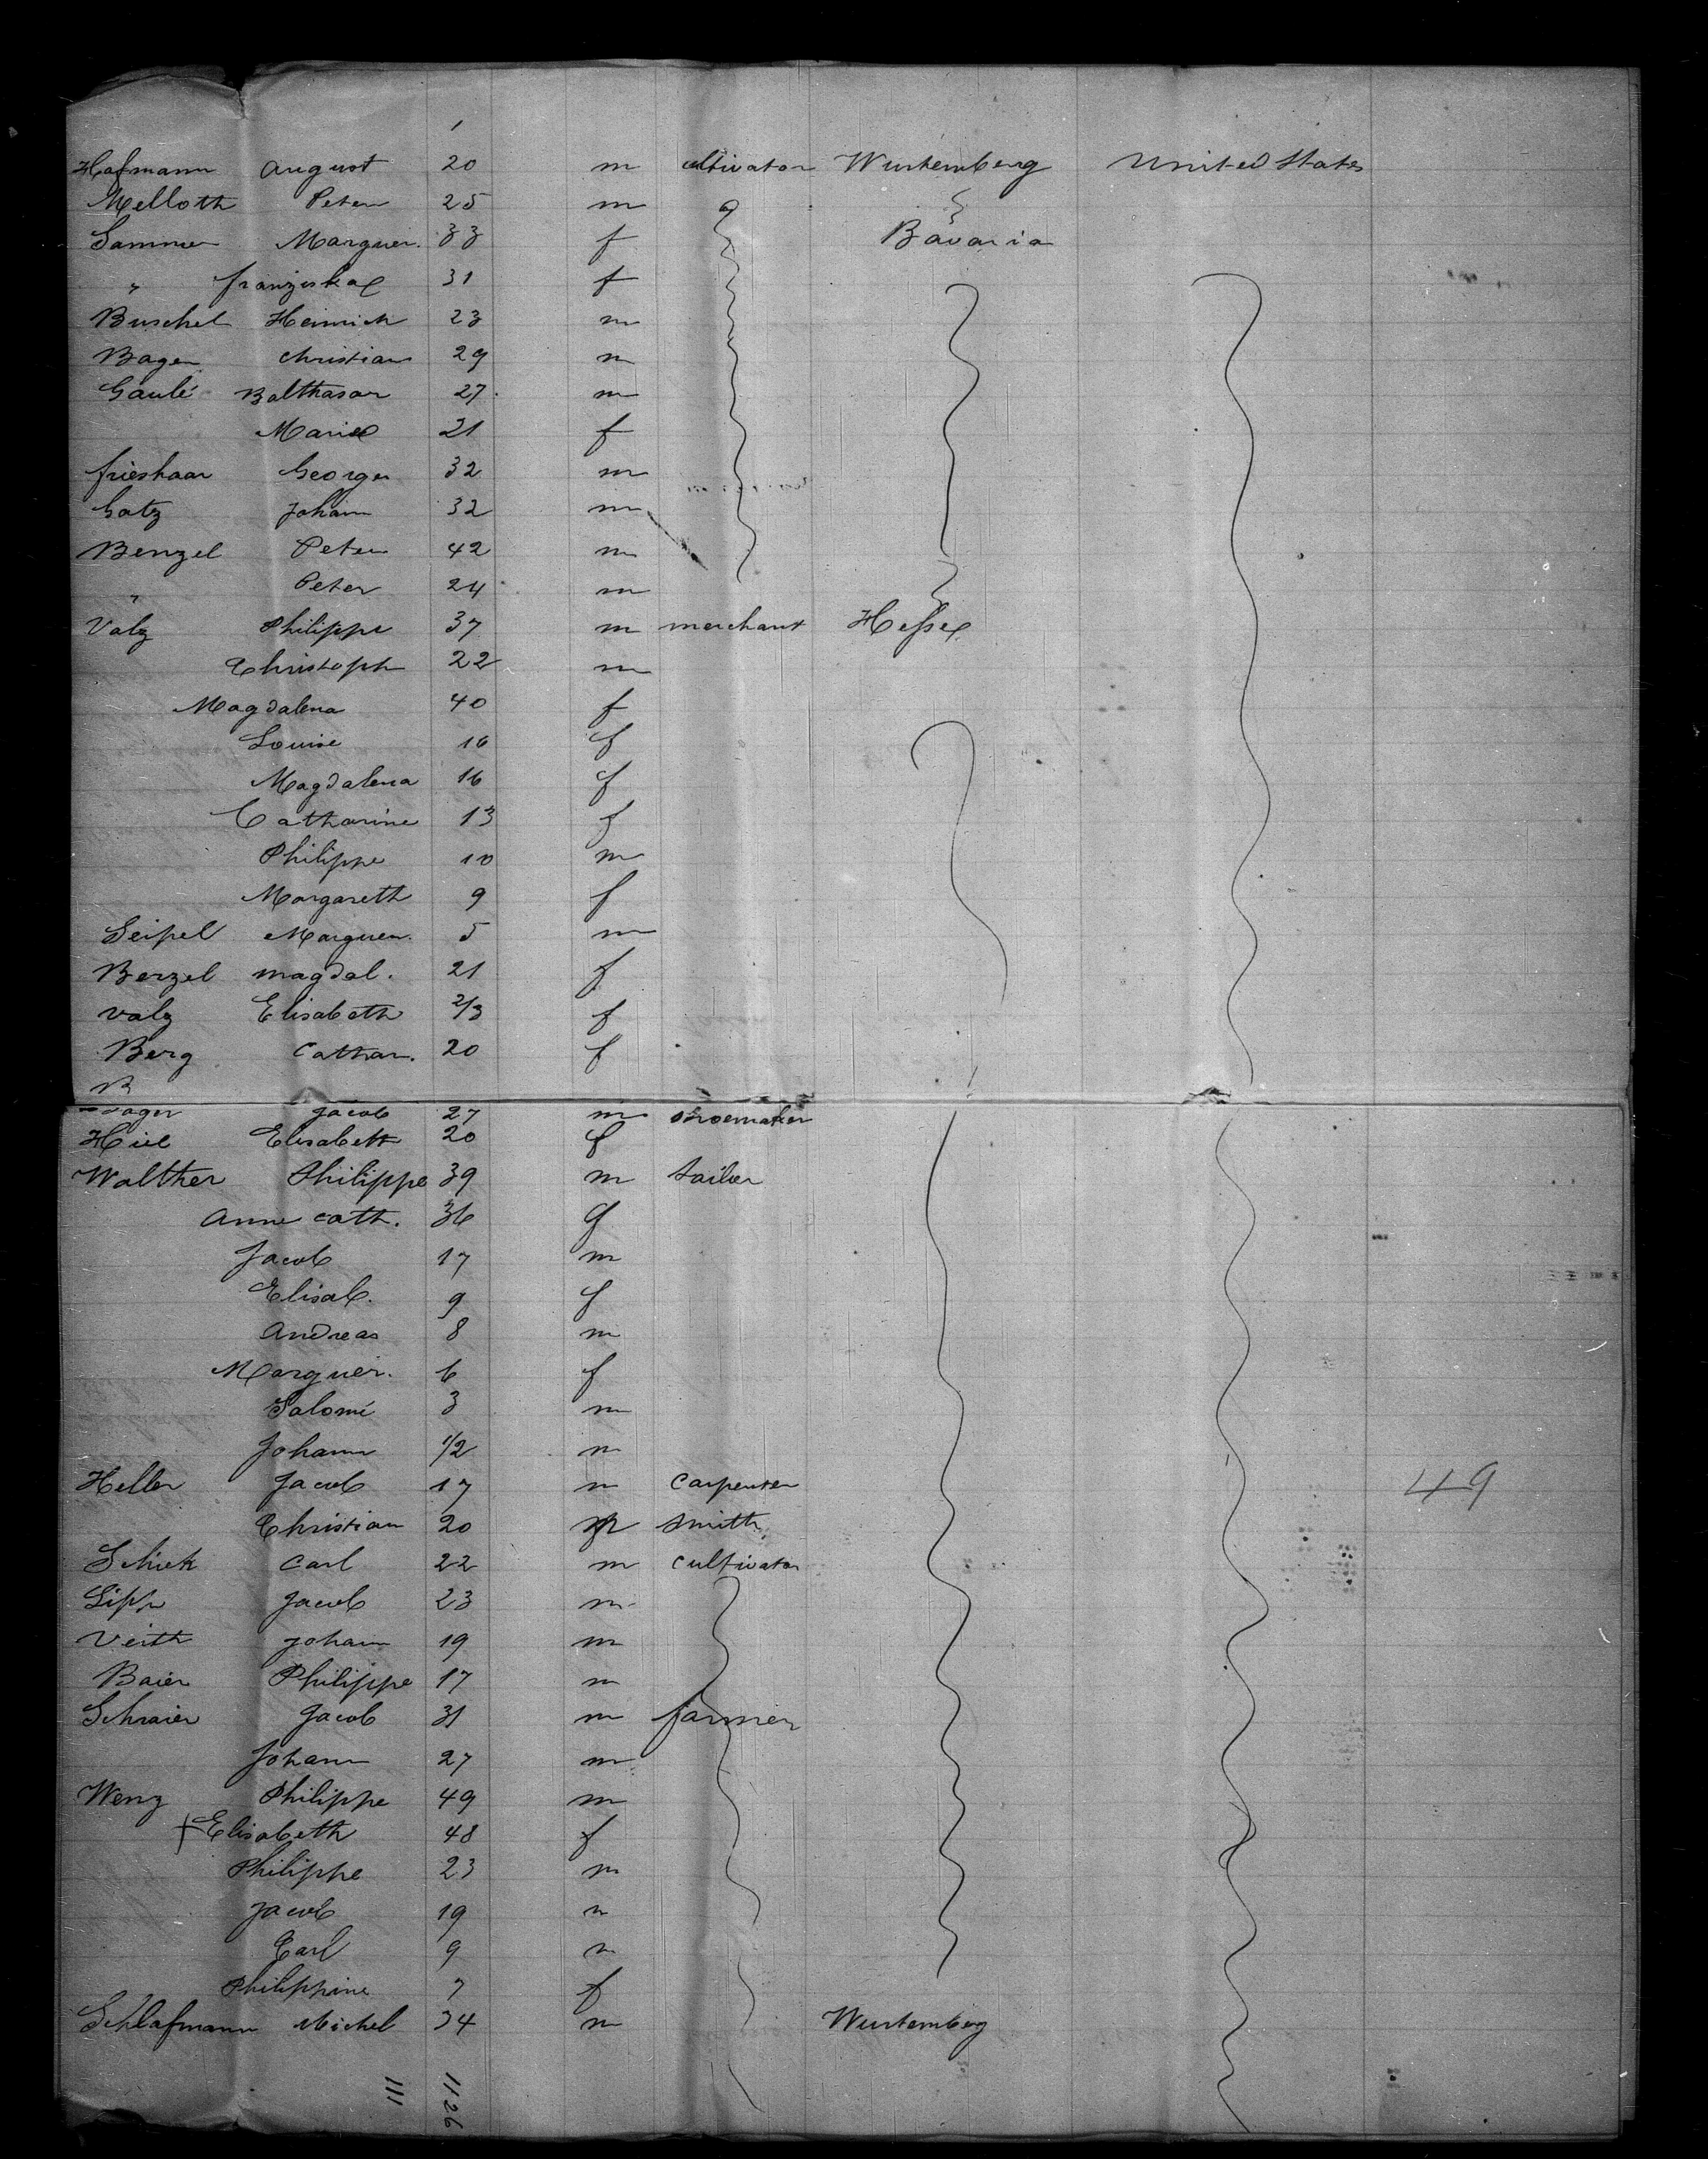 Hofmann August 20 m cultivator Wurtemberg United States
Melloth Peter 25 m
Sammer Marguer. 33 f Bavaria
" franziska 31 f
Buschel Heinrich 23 m
Bager Christian 29 m
Gaulé Balthasar 27 m
Marie 21 f
frieshaar George 32 m
Gotz Johann 32 m
Benzel Peter 42 m
" Peter 24 m
Valz Philippe 37 m merchant Hesse
Christoph 22 m
Magdalena 40 f
Louise 16 f
Magdalena 16 f
Catharine 13 f
Philippe 10 m
Margareth 9 f
Seipel Marguer. 5 m
Berzel magdal. 21 f
Valz Elisabeth 2/3 f
Berg Cathar. 20 f
B
Jacob 27 m shoemaker
Elisabeth 20 f
Walther Philippe 39 m tailor
Anne Cath. 36 f
Jacob 17 m
Elisab. 9 f
Andreas 8 m
Marguer. 6 f
Salomé 3 m
Johann 1/2 m
Heller Jacob 17 m Carpenter 49
Christian 20 m smith
Schick Carl 22 m cultivator
Lipp Jacob 23 m
Veith Johann 19 m
Baier Philippe 17 m
Schraier Jacob 31 m farmer
Johann 27 m
Wenz Philippe 49 m
† Elisabeth 48 f
Philippe 23 m
Jacob 19 m
Carl 9 m
Philippine 7 f
Schlafmann Michel 34 m Wurtemberg
111 1126